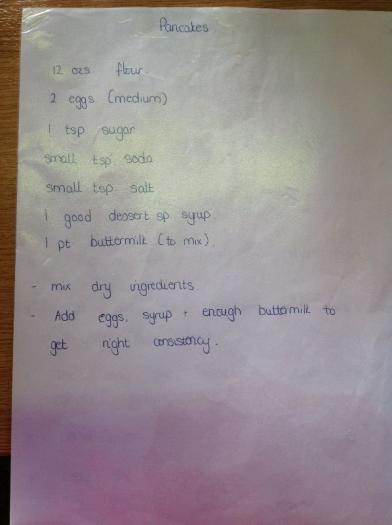 Pancakes
12 ozs flour.
2 eggs (medium)
1 tsp sugar
small tsp soda
small tsp salt
1 good dessert sp syrup
1 pt buttermilk (to mix).
- mix dry ingredients.
- Add eggs, syrup + enough buttermilk to
get right consistency.